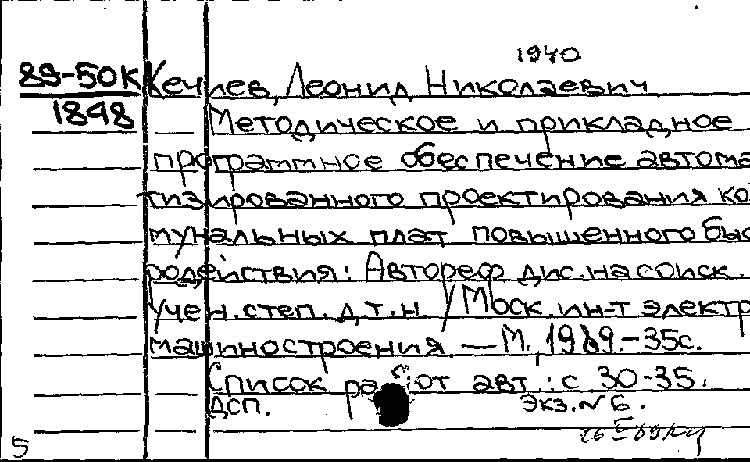 1940
89-50К Кечиев, Леонид Николаевич
1898 Методическое и прикладное
программное обеспечение автома
тизированного проектирования ко
мунальных плат повышенного быс
родействия: Автореф дис. на соиск.
учен. степ. д.т.н / Моск. ин-т электр
машиностроения. — М., 1989. - 35с.
Список работ авт.: с. 30-35.
ДСП. Экз. № 6.
5